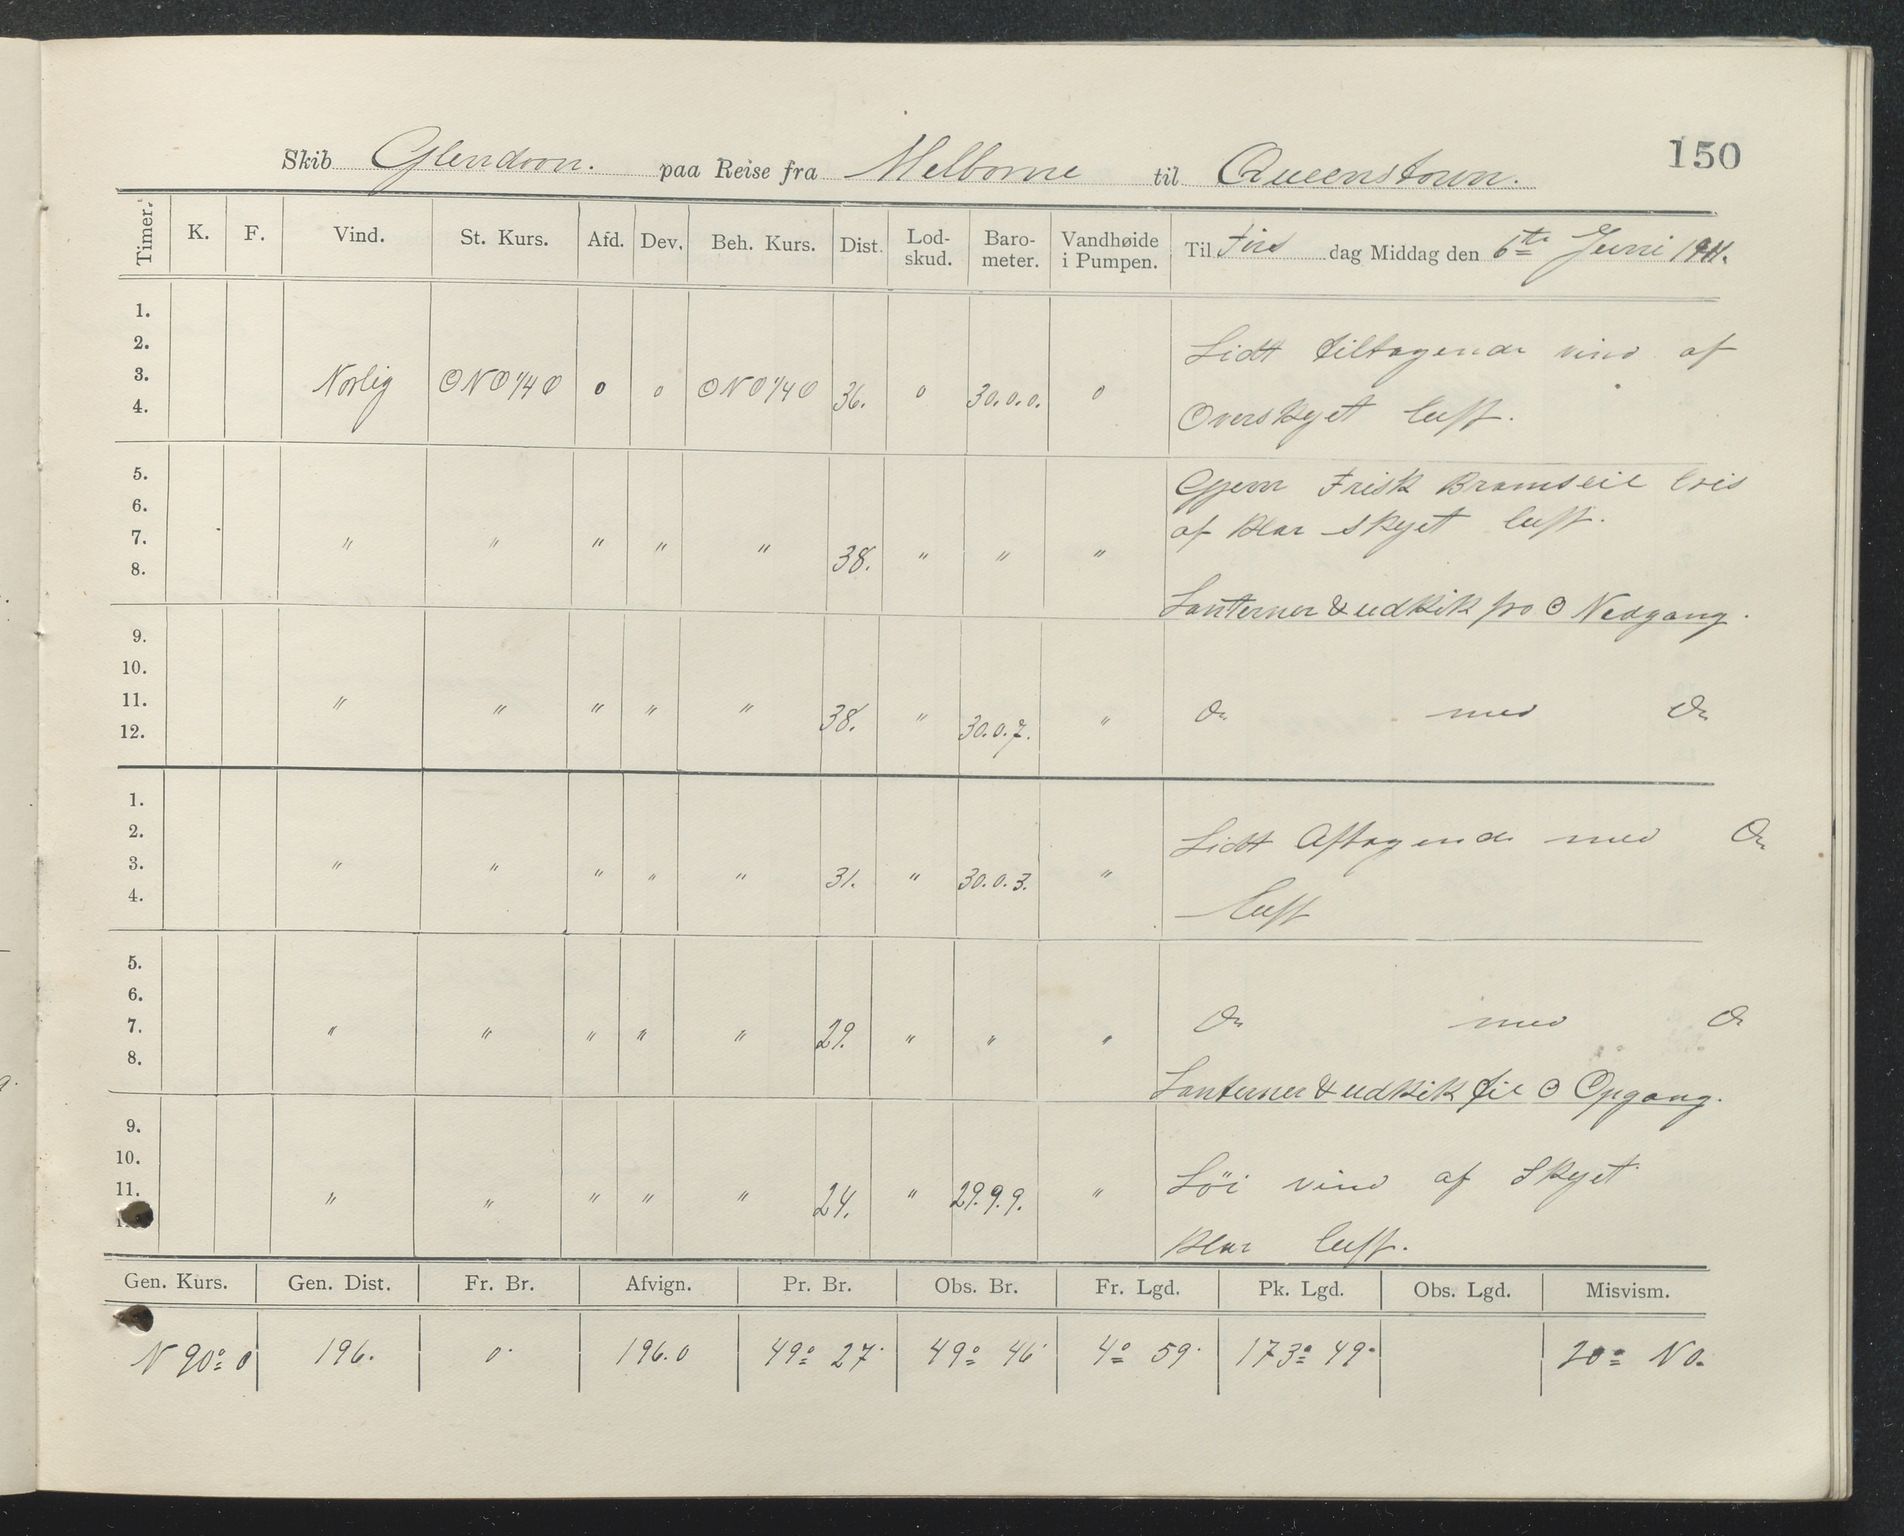 150
Skib Glendoon. paa Reise fra Melborne til Queenstown.
Timer. K. F. Vind. St. Kurs. Afd. Dev. Beh. Kurs. Dist. Lod-skud. Baro-meter. Vandhøide i Pumpen. Til Tirs dag Middag den 6te Juni 1911.
1.
2. Lidt tiltagende vind af
3. Norlig ONO 1/4 O 0 0 ONO 1/4 O 36. 0 30.0.0. 0
4. Overskyet luft.
5. Gjem Frisk Bramseil bris
6. af klar skyet luft.
7. " " " " " 38. " " "
8.
Lanterner & udkik fra ⊙ Nedgang.
9.
10.
11. " " " " " 38. " 30.0.7. " Do med Do
12.
1.
2. Lidt Aftagende med Do
3. " " " " " 31. " 30.0.3. "
4. luft
5.
6.
7. " " " " " 29. " " " Do med Do
8.
Lanterner & udkik til ⊙ Opgang.
9.
10. Löi vind af Skyet
11. " " " " " 24. " 29.9.9. "
klar luft.
Gen. Kurs. Gen. Dist. Fr. Br. Afvign. Pr. Br. Obs. Br. Fr. Lgd. Pk. Lgd. Obs. Lgd. Misvism.
N 90° O 196. 0 196.0 49° 27' 49° 46' 4° 59' 173° 49' 20° NO.